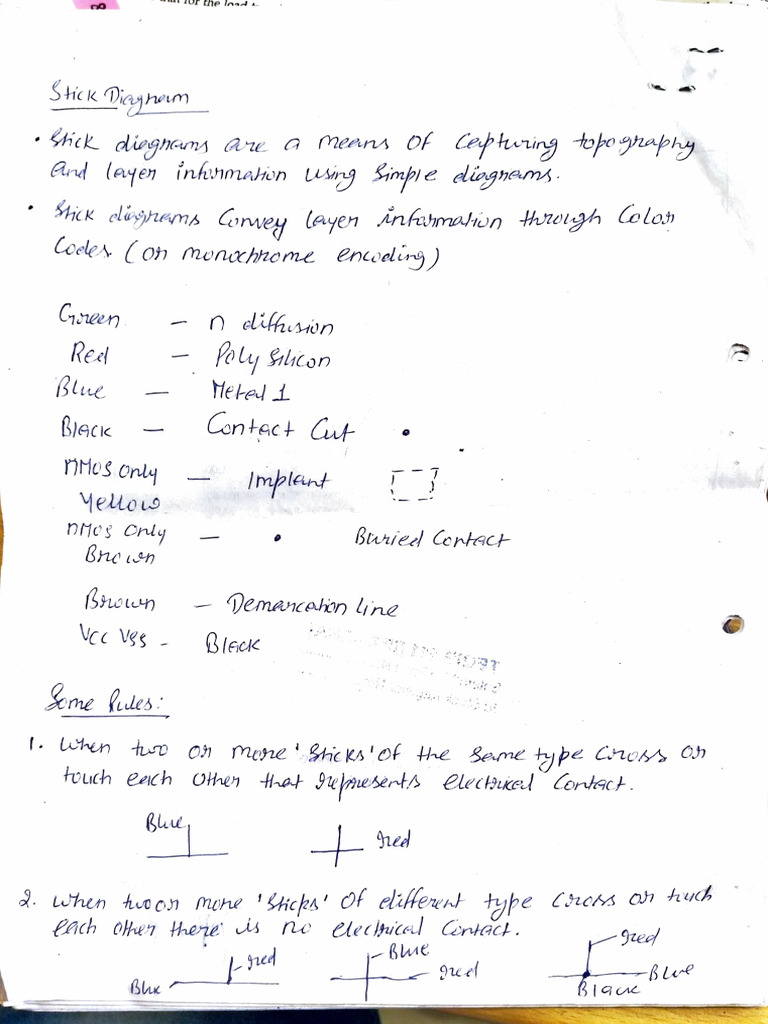 for the load
Stick Diagram
• Stick diagrams are a means of capturing topography
and layer information using simple diagrams.
• Stick diagrams Convey layer information through Color
Codes (or monochrome encoding)
Green – n diffusion
Red – Poly Silicon
Blue – Metal 1
Black – Contact Cut •
NMOS Only – Implant
Yellow
NMOS Only – • Buried Contact
Brown
Brown – Demarcation line
VCC VSS - Black
Some Rules:
1. When two or more 'Sticks' of the same type cross or
touch each other that represents electrical Contact.
Blue red
2. When two or more 'Sticks' of different type cross or touch
each other there is no electrical Contact.
Blue red Blue red red Blue
Black